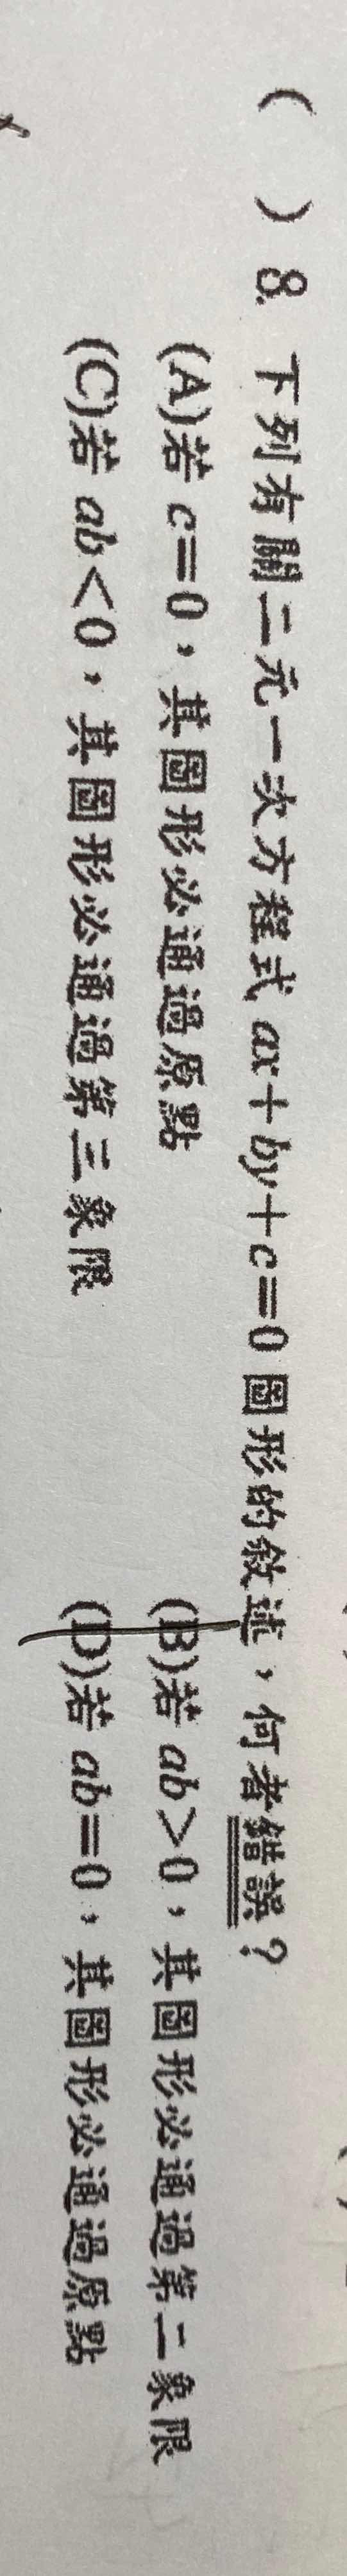 ( ) 8. 下列有關二元一次方程式 ax+by+c=0 圖形的敘述，何者錯誤？
(A)若 c=0，其圖形必通過原點 (B)若 ab>0，其圖形必通過第二象限
(C)若 ab<0，其圖形必通過第三象限 (D)若 ab=0，其圖形必通過原點